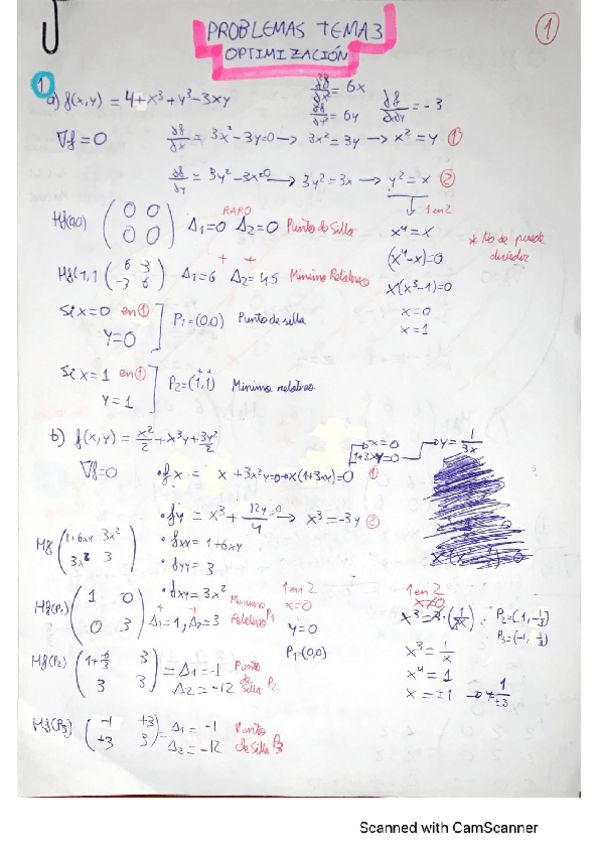 PROBLEMAS TEMA 3
OPTIMIZACIÓN
1
1
a) f(x,y) = 4+x³+y³-3xy
∂f/∂x = 6x
∂f/∂y = 6y ∂f/∂x∂y = -3
∇f=0 ∂f/∂x = 3x²-3y=0 → 3x²=3y → x²=y ①
∂f/∂y = 3y²-3x=0 → 3y²=3x → y²=x ②
1 en 2
Hf(0,0) (0 0
0 0) Δ1=0 Δ2=0 RARO Punto de Silla
x⁴=x
(x⁴-x)=0
x(x³-1)=0
x=0
x=1
* No se puede
dividir
Hf(1,1) (6 3
-3 6) Δ1=6 Δ2=45 + + Mínimo Relativo
Si x=0 en ①
y=0
P1=(0,0) Punto de silla
Si x=1 en ①
y=1
P2=(1,1) Mínimo relativo
b) f(x,y) = x²/2+x³y+3y²/2
∇f=0 • fx = x+3x²y=0→x(1+3xy)=0 ①
x=0
1+3xy=0 → y=1/3x
• fy = x³+12y=0/4 → x³=-3y ②
• fxx = 1+6xy
• fyy = 3
• fxy = 3x²
Hf (1+6xy 3x²
3x² 3)
Hf(P1) (1 0
0 3) Δ1=1, Δ2=3 Mínimo
Relativo P1
1 en 2
x=0
y=0
P1=(0,0)
1 en 2
x≠0
P2=(1,-1/3)
P3=(-1,
x³=1/x
x⁴=1
x=±1
Hf(P2) (3
3 3) = Δ1=-1
Δ2=-12 Punto
de
Silla P2
Hf(P3) (-1 +3
+3 3) = Δ1=-1
Δ2=-12 Punto
de silla P3
Scanned with CamScanner